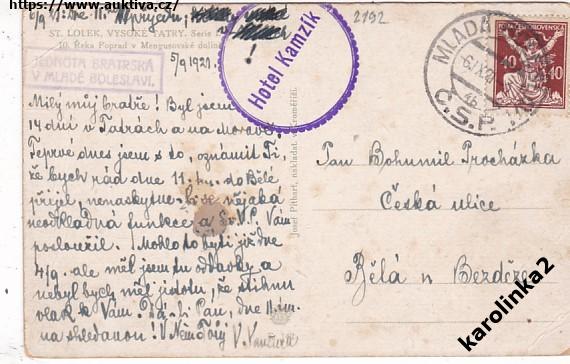 https://www.auktiva.cz/
5/9
ST. LOLEK, VYSOKÉ TATRY. Serie
10. Řeka Poprad v Mengusovské dolině
!
5/9 1921.
2192
JEDNOTA BRATRSKÁ
V MLADÉ BOLESLAVI.
Hotel Kamzík
MLADÁ
Č.S.P.
40 40
Milý můj bratře! Byl jsem
14 dní v Tatrách a na Moravě.
Teprve dnes jsem s to, oznámit Ti,
že bych rád dne 11. t.m. do Bělé
přijel, nenaskytne-li se nějaká
neodkladná funkce a sv. V. P. Vám
posloužil. Mohlo to býti již dne
4/9. ale měl jsem tu oddavky a
nebyl bych měl jistotu, že stihnu
vlak k Vám. Dá-li Pán, dne 11. t.m.
na shledanou! V
Josef Pithart, nakladatel, Kroměříž.
Pan Bohumil Procházka
Česká ulice
Bělá n Bezdězem
karolinka2